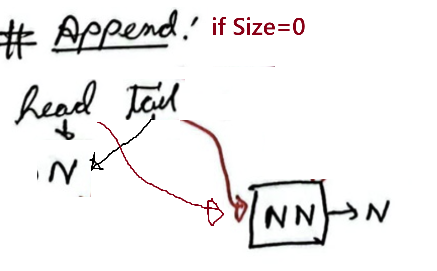 # Append! if Size=0
head Tail
N
NN N